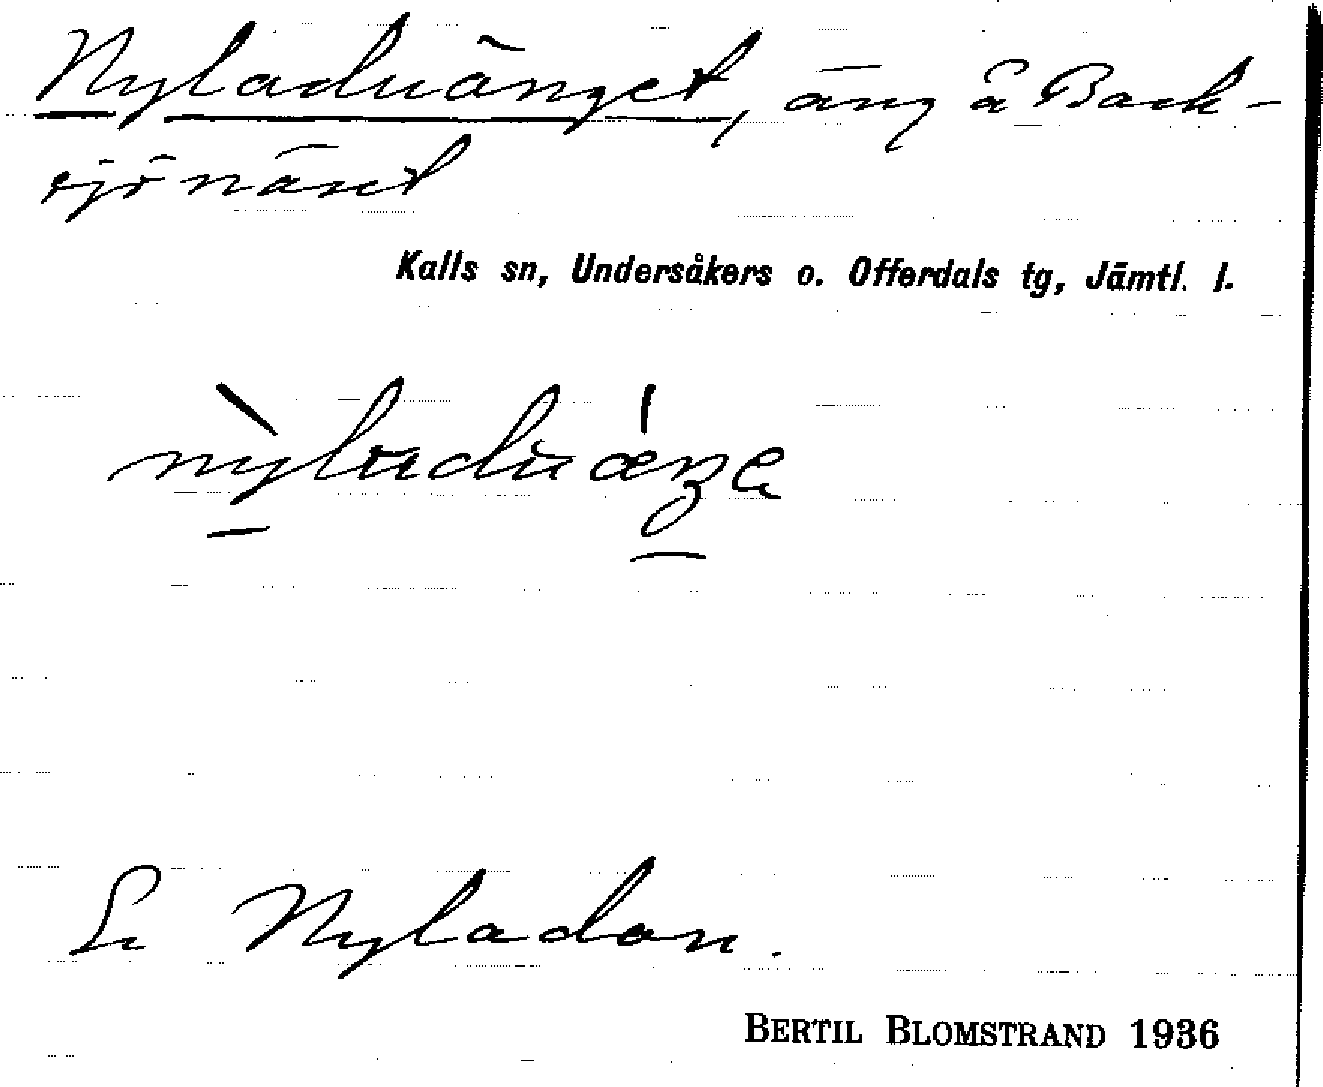 Nyladuänget, äng å Back-
sjönäset
Kalls sn, Undersåkers o. Offerdals tg, Jämtl. l.
Se Nyladan.
BERTIL BLOMSTRAND 1936